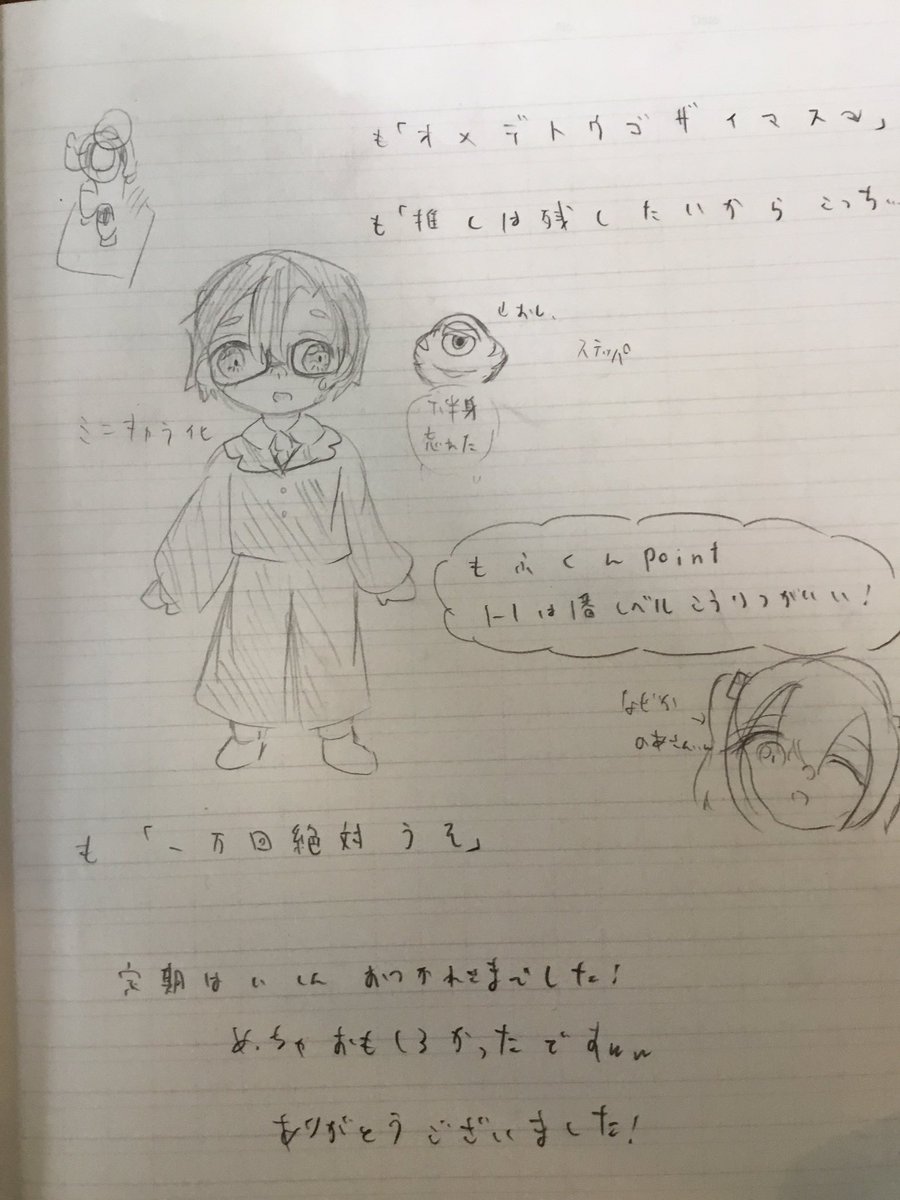 も「オメデトウゴザイマスマ」
も「推しは残したいからこっち…
むおし、
ステッパ
ミニキャラ化
下半身
忘れた
もふくん point
1-1は1番レベルこうりつがいい!
なぜか
のあさん
も「一万回絶対うそ」
定期はいしんおつかれさまでした!
めっちゃおもしろかったですww
ありがとうございました!